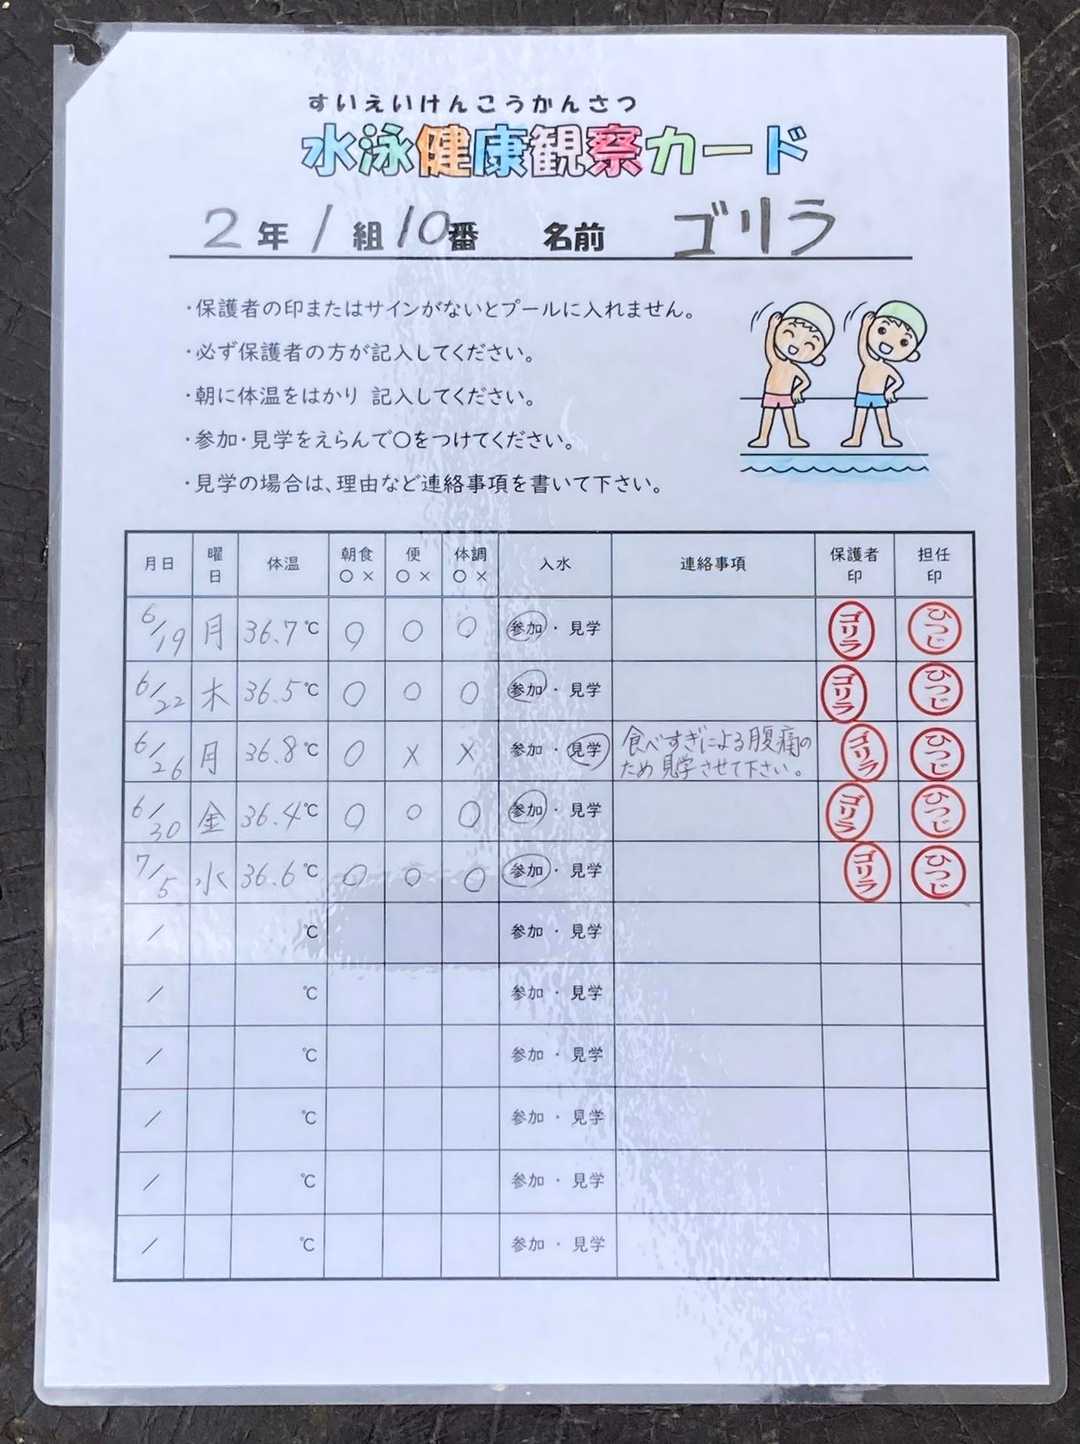 すいえいけんこうかんさつ
水泳健康観察カード
2年 1組 10番 名前 ゴリラ
・保護者の印またはサインがないとプールに入れません。
・必ず保護者の方が記入してください。
・朝に体温をはかり 記入してください。
・参加・見学をえらんで○をつけてください。
・見学の場合は、理由など連絡事項を書いて下さい。
月日 曜日 体温 朝食○× 便○× 体調○× 入水 連絡事項 保護者印 担任印
6/19 月 36.7℃ ○ ○ ○ 参加・見学 ゴリラ ひつじ
6/22 木 36.5℃ ○ ○ ○ 参加・見学 ゴリラ ひつじ
6/26 月 36.8℃ ○ × × 参加・見学 食べすぎによる腹痛のため見学させて下さい。 ゴリラ ひつじ
6/30 金 36.4℃ ○ ○ ○ 参加・見学 ゴリラ ひつじ
7/5 水 36.6℃ ○ ○ ○ 参加・見学 ゴリラ ひつじ
/ ℃ 参加・見学
/ ℃ 参加・見学
/ ℃ 参加・見学
/ ℃ 参加・見学
/ ℃ 参加・見学
/ ℃ 参加・見学